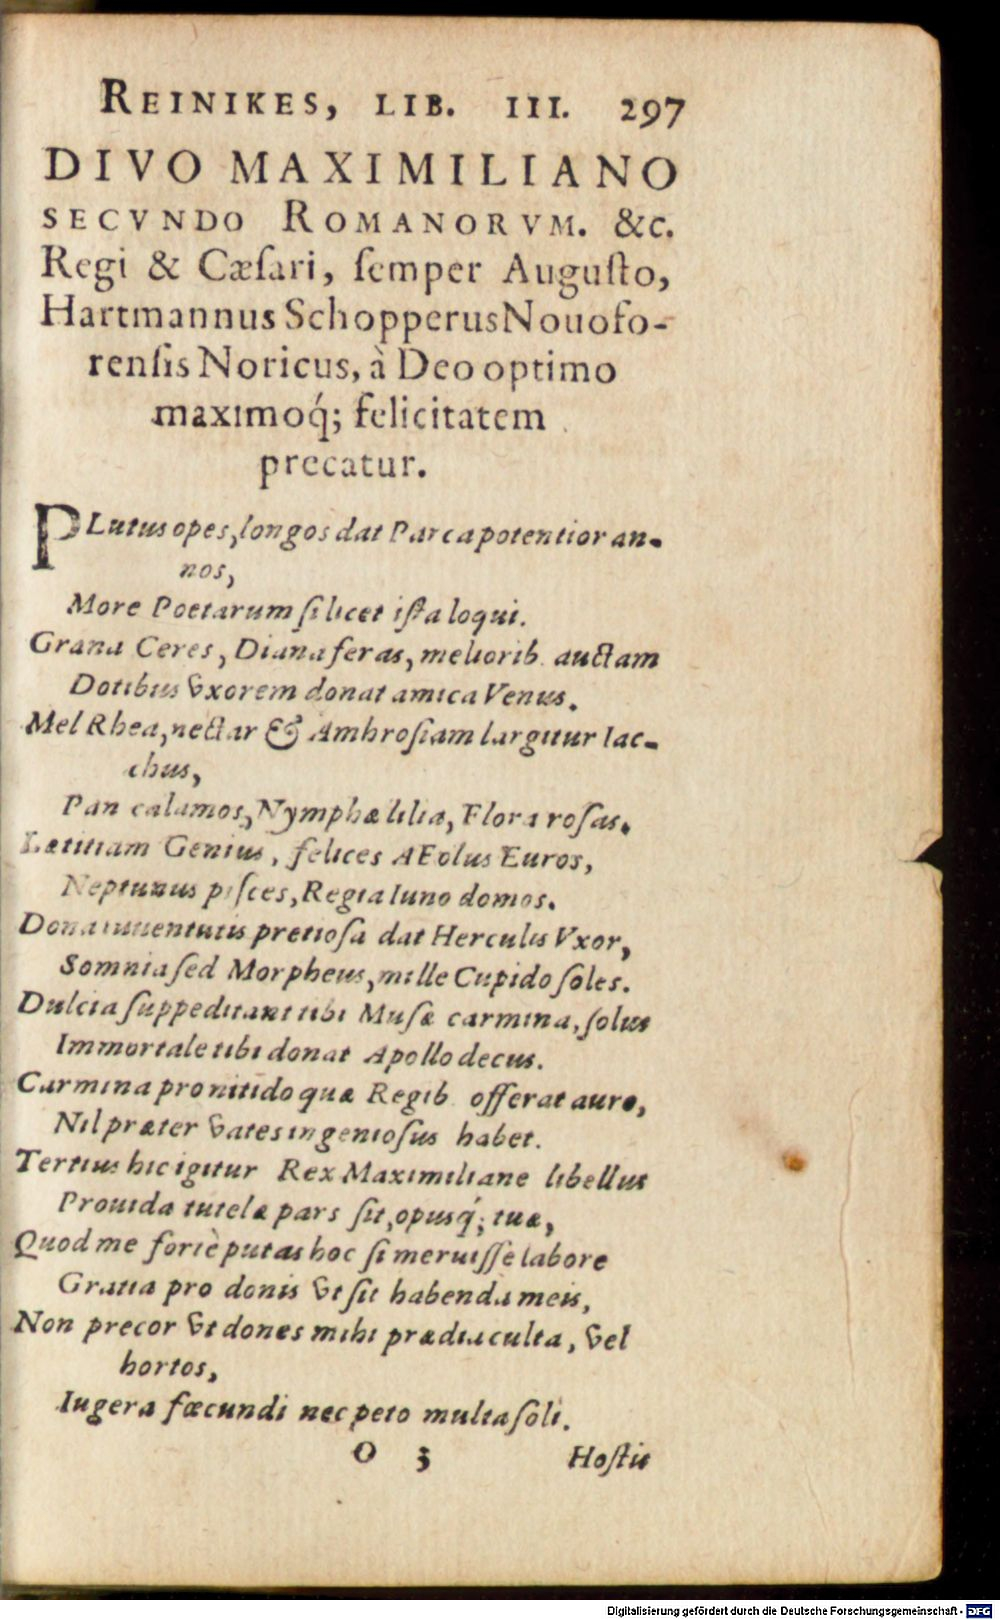 REINIKES, LIB. III. 297
DIVO MAXIMILIANO
SECVNDO ROMANORVM. &c.
Regi & Cæſari, ſemper Auguſto,
Hartmannus Schopperus Nouofo-
renſis Noricus, à Deo optimo
maximoq́; felicitatem
precatur.
PLutus opes, longos dat Parca potentior an-
nos,
More Poetarum ſi licet iſta loqui.
Grana Ceres, Diana feras, meliorib. auctam
Dotibus vxorem donat amica Venus.
Mel Rhea, nectar & Ambroſiam largitur Iac-
chus,
Pan calamos, Nymphæ lilia, Flora roſas.
Lætitiam Genius, felices AEolus Euros,
Neptunus piſces, Regia Iuno domos.
Dona iuuentutis pretioſa dat Herculis Vxor,
Somnia ſed Morpheus, mille Cupido ſoles.
Dulcia ſuppeditant tibi Muſæ carmina, ſolus
Immortale tibi donat Apollo decus.
Carmina pro nitido quæ Regib. offerat auro,
Nil præter vates ingenioſus habet.
Tertius hic igitur Rex Maximiliane libellus
Prouida tutelæ pars ſit, opusq́; tuæ,
Quod me fortè putas hoc ſi meruiſſe labore
Gratia pro donis vt ſit habenda meis,
Non precor vt dones mihi prædia culta, vel
hortos,
Iugera fœcundi nec peto multa ſoli.
O 3 Hoſtis
Digitalisierung gefördert durch die Deutsche Forschungsgemeinschaft - DFG